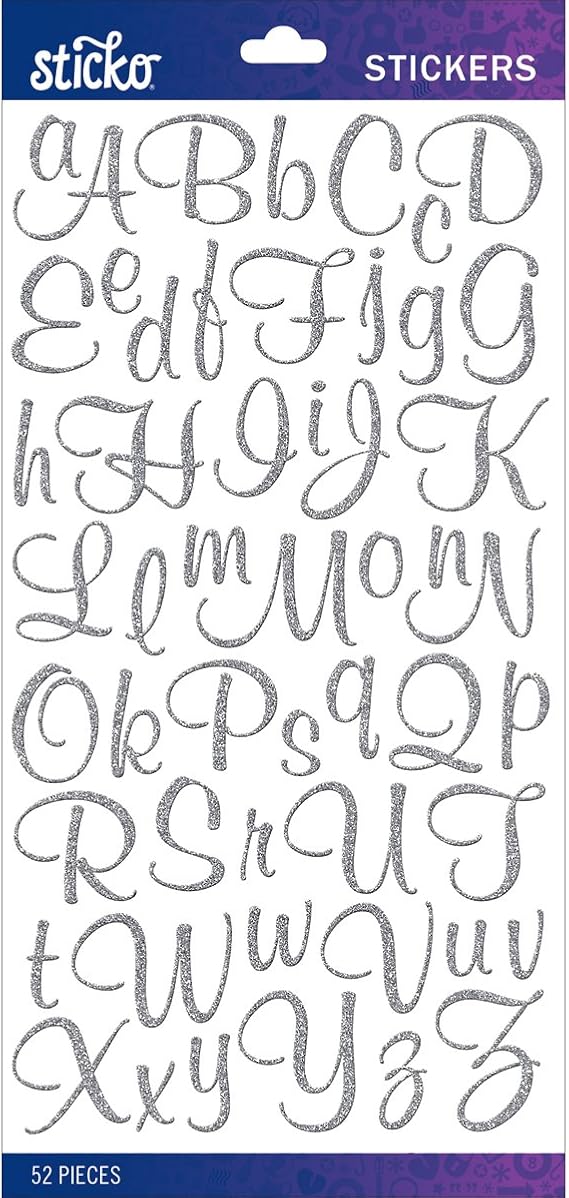 sticko®
STICKERS
a A B b C c D
E e d f F j g G
h H I i J K
L l m M o n N
O k P s q Q p
R S r U T
t W w V u v
X x y Y z Z
52 PIECES